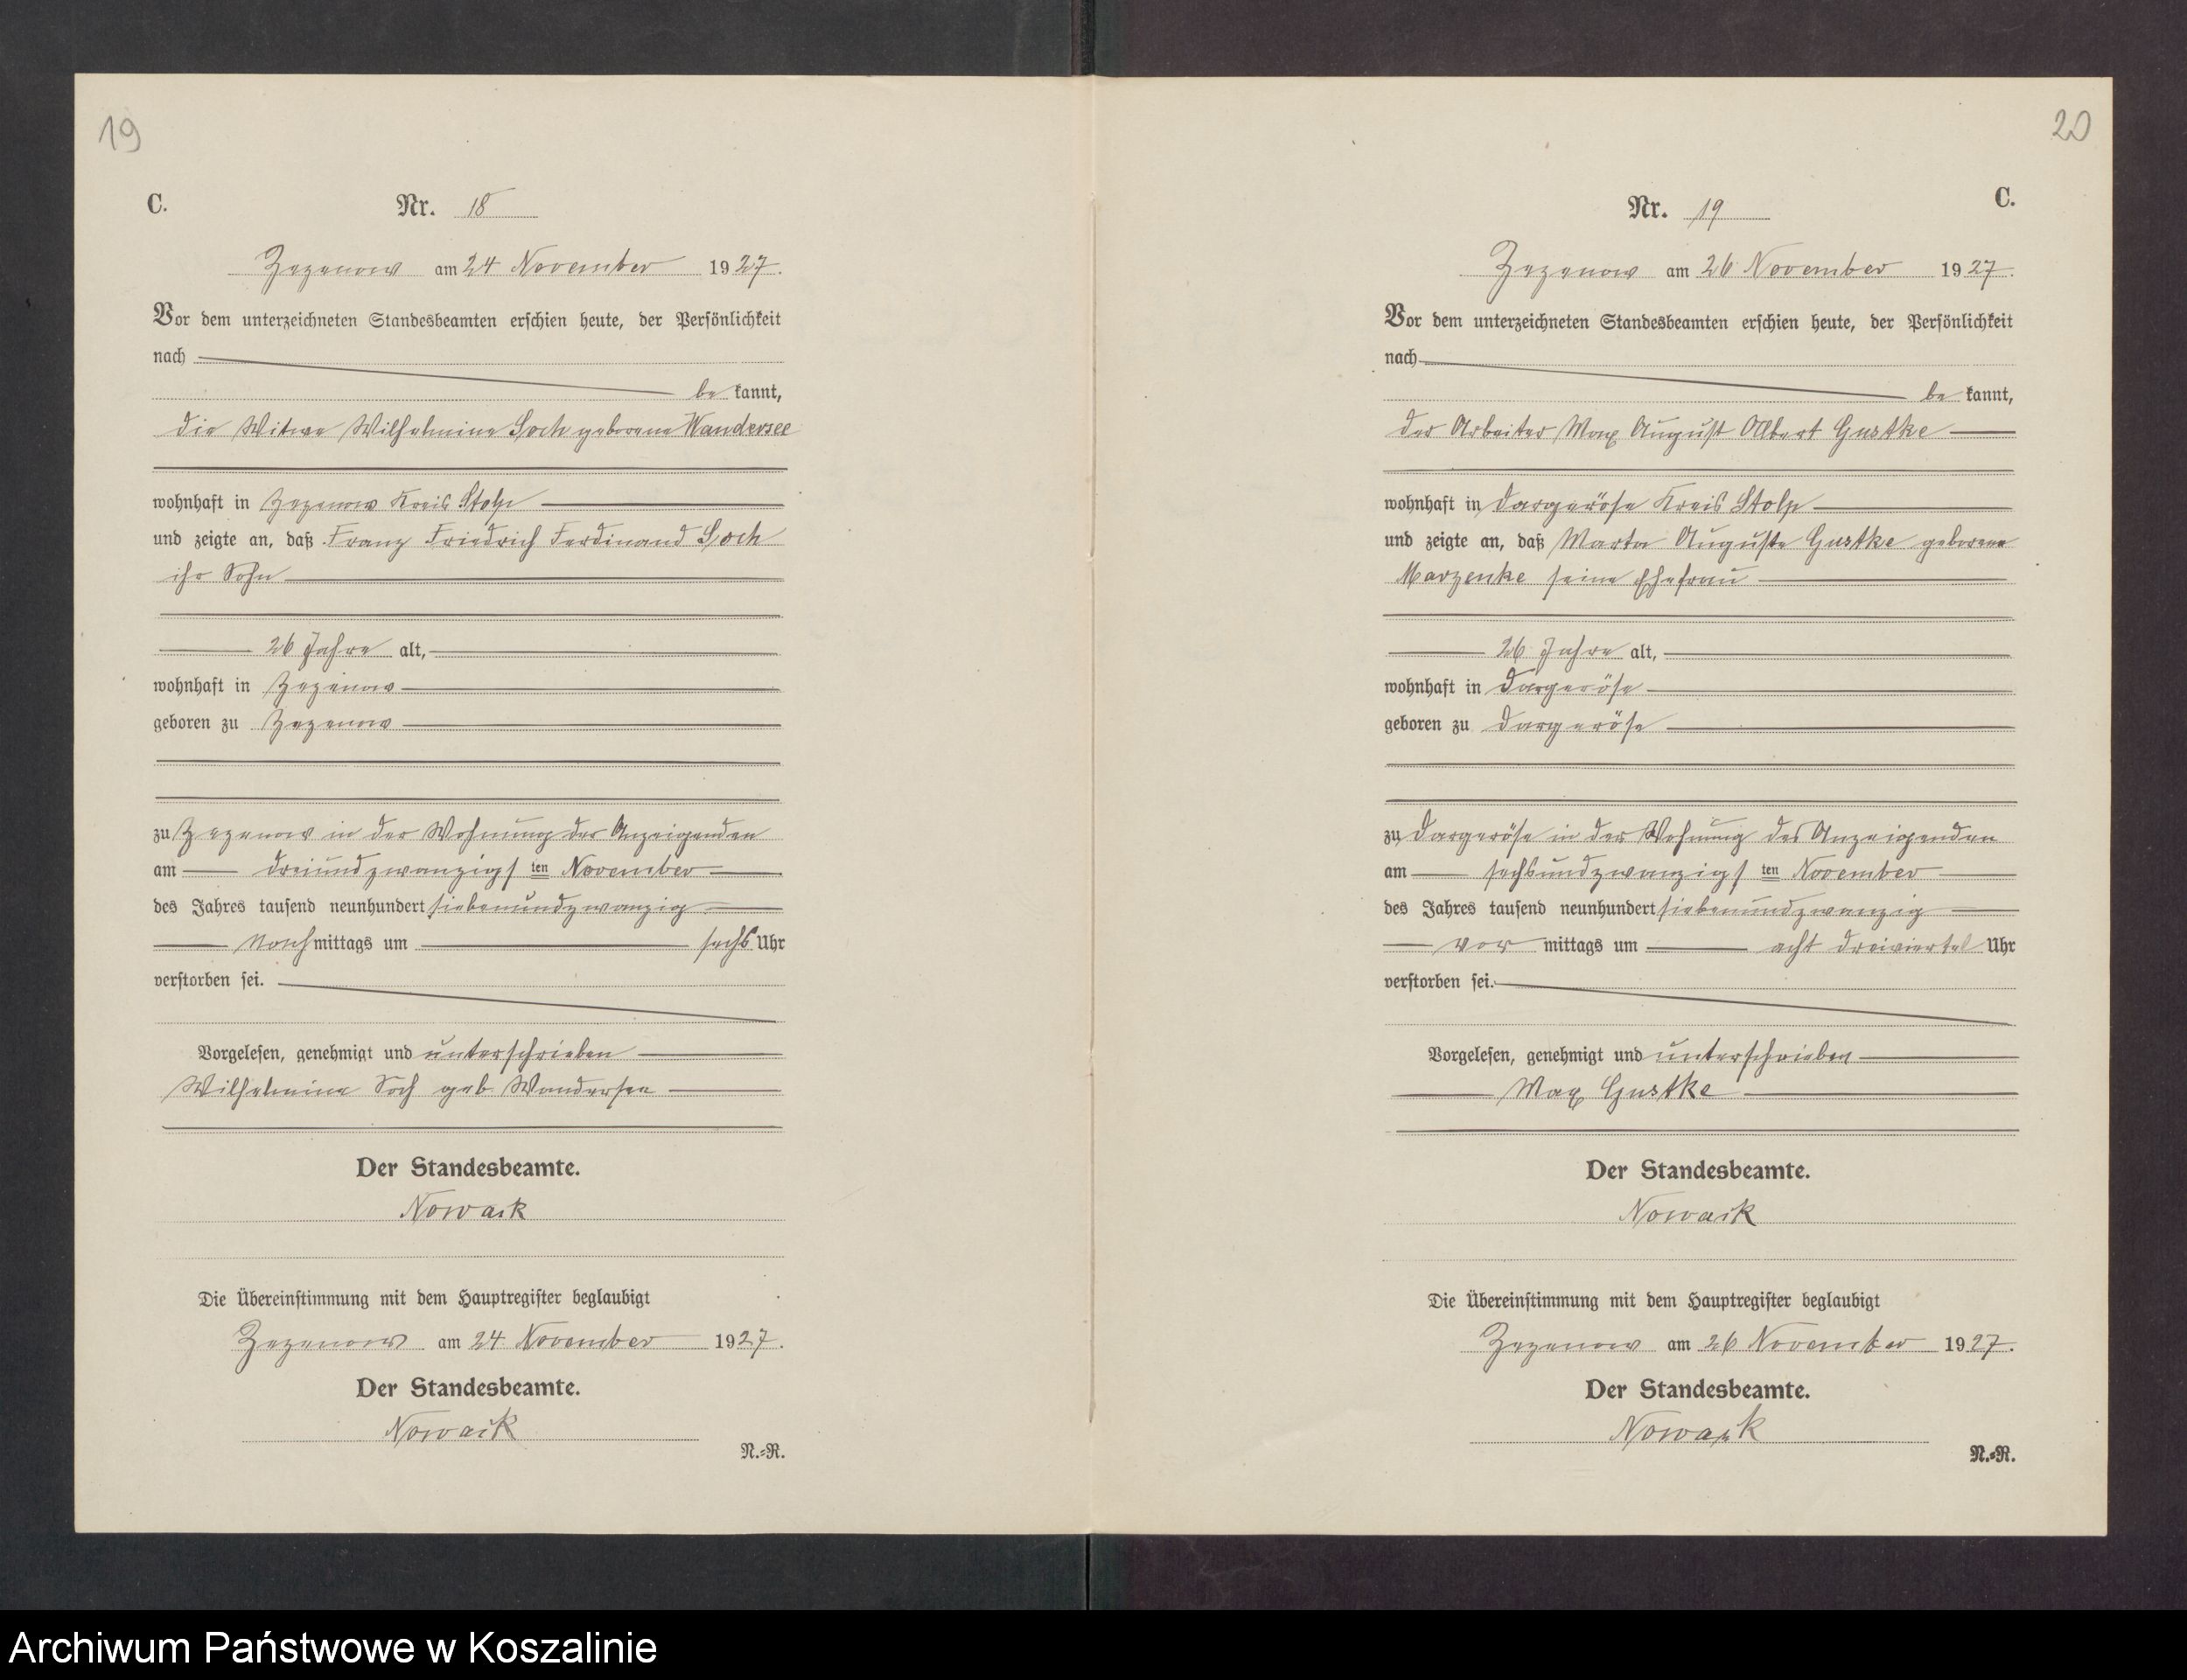 19
C.
Nr. 18
Zezenow am 24 November 1927.
Vor dem unterzeichneten Standesbeamten erschien heute, der Persönlichkeit
nach
be kannt,
die Witwe Wilhelmine Soch geborene Wandersee
wohnhaft in Zezenow Kreis Stolp
und zeigte an, daß Franz Friedrich Ferdinand Soch
ihr Sohn
26 Jahre alt,
wohnhaft in Zezenow
geboren zu Zezenow
zu Zezenow in der Wohnung der Anzeigenden
am dreiundzwanzigs ten November
des Jahres tausend neunhundert siebenundzwanzig
Nach mittags um sechs Uhr
verstorben sei.
Vorgelesen, genehmigt und unterschrieben
Wilhelmine Soch geb. Wandersee
Der Standesbeamte.
Nowack
Die Übereinstimmung mit dem Hauptregister beglaubigt
Zezenow am 24 November 1927.
Der Standesbeamte.
Nowack
N.=R.
20
C.
Nr. 19
Zezenow am 26 November 1927.
Vor dem unterzeichneten Standesbeamten erschien heute, der Persönlichkeit
nach
be kannt,
der Arbeiter Max August Albert Gustke
wohnhaft in Dargeröse Kreis Stolp
und zeigte an, daß Marta Auguste Gustke geborene
Marzenke seine Ehefrau
26 Jahre alt,
wohnhaft in Dargeröse
geboren zu Dargeröse
zu Dargeröse in der Wohnung des Anzeigenden
am sechsundzwanzigs ten November
des Jahres tausend neunhundert siebenundzwanzig
vor mittags um acht dreiviertel Uhr
verstorben sei.
Vorgelesen, genehmigt und unterschrieben
Max Gustke
Der Standesbeamte.
Nowack
Die Übereinstimmung mit dem Hauptregister beglaubigt
Zezenow am 26 November 1927.
Der Standesbeamte.
Nowack
N.=R.
Archiwum Państwowe w Koszalinie